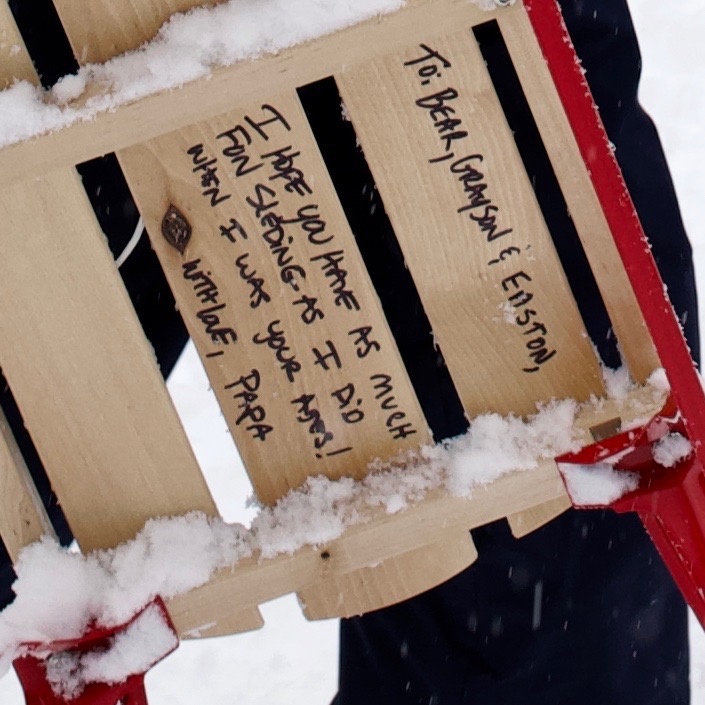 To: BEAR, GRAYSON & EASTON,
I HOPE YOU HAVE AS MUCH
FUN SLEDING AS I DID
WHEN I WAS YOUR AGES!
WITH LOVE, PAPA